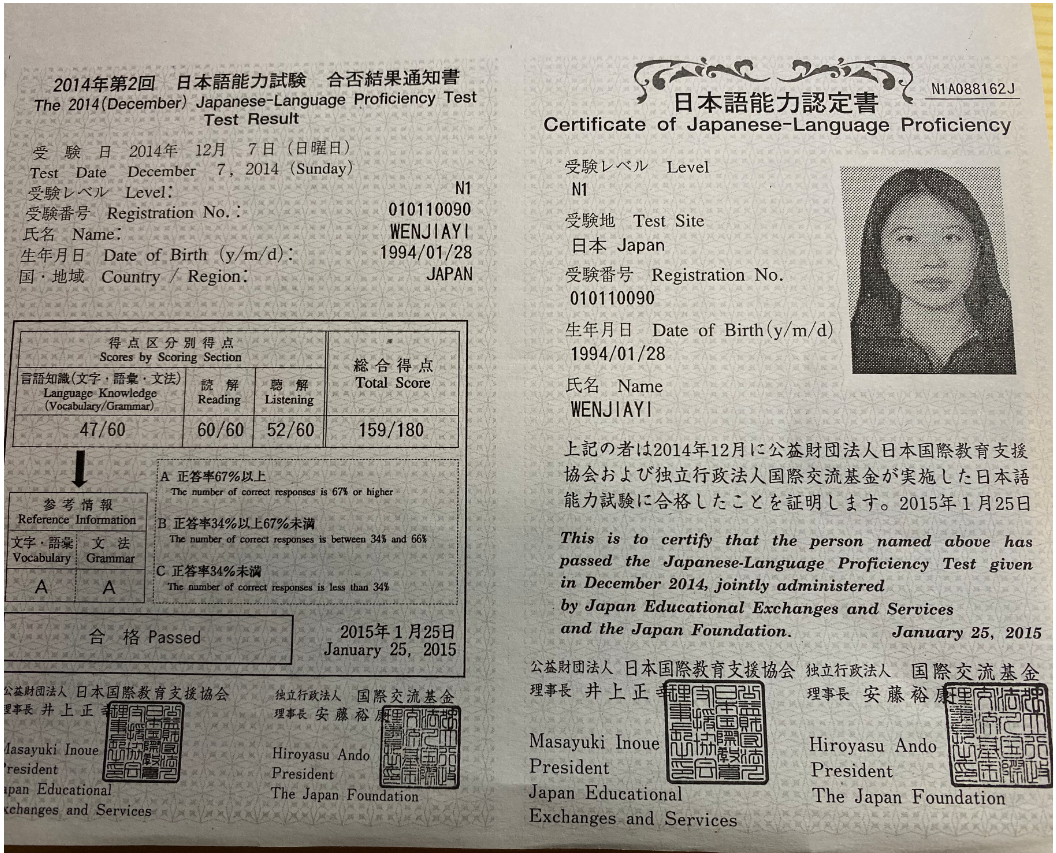 2014年第2回 日本語能力試験 合否結果通知書
The 2014(December) Japanese-Language Proficiency Test
Test Result
受 験 日 2014年 12月 7日 (日曜日)
Test Date December 7, 2014 (Sunday)
受験レベル Level: N1
受験番号 Registration No.: 010110090
氏名 Name: WENJIAYI
生年月日 Date of Birth (y/m/d): 1994/01/28
国・地域 Country / Region: JAPAN
得点区分別得点
Scores by Scoring Section
総合得点
Total Score
言語知識(文字・語彙・文法)
Language Knowledge
(Vocabulary/Grammar)
読 解
Reading
聴 解
Listening
47/60 60/60 52/60 159/180
参考情報
Reference Information
文字・語彙
Vocabulary
文 法
Grammar
A A
A 正答率67%以上
The number of correct responses is 67% or higher
B 正答率34%以上67%未満
The number of correct responses is between 34% and 66%
C 正答率34%未満
The number of correct responses is less than 34%
合 格 Passed
2015年1月25日
January 25, 2015
公益財団法人 日本国際教育支援協会
理事長 井上正幸
Masayuki Inoue
President
Japan Educational
Exchanges and Services
独立行政法人 国際交流基金
理事長 安藤裕康
Hiroyasu Ando
President
The Japan Foundation
N1A088162J
日本語能力認定書
Certificate of Japanese-Language Proficiency
受験レベル Level
N1
受験地 Test Site
日本 Japan
受験番号 Registration No.
010110090
生年月日 Date of Birth(y/m/d)
1994/01/28
氏名 Name
WENJIAYI
上記の者は2014年12月に公益財団法人日本国際教育支援
協会および独立行政法人国際交流基金が実施した日本語
能力試験に合格したことを証明します。2015年1月25日
This is to certify that the person named above has
passed the Japanese-Language Proficiency Test given
in December 2014, jointly administered
by Japan Educational Exchanges and Services
and the Japan Foundation. January 25, 2015
公益財団法人 日本国際教育支援協会
理事長 井上正幸
Masayuki Inoue
President
Japan Educational
Exchanges and Services
独立行政法人 国際交流基金
理事長 安藤裕康
Hiroyasu Ando
President
The Japan Foundation